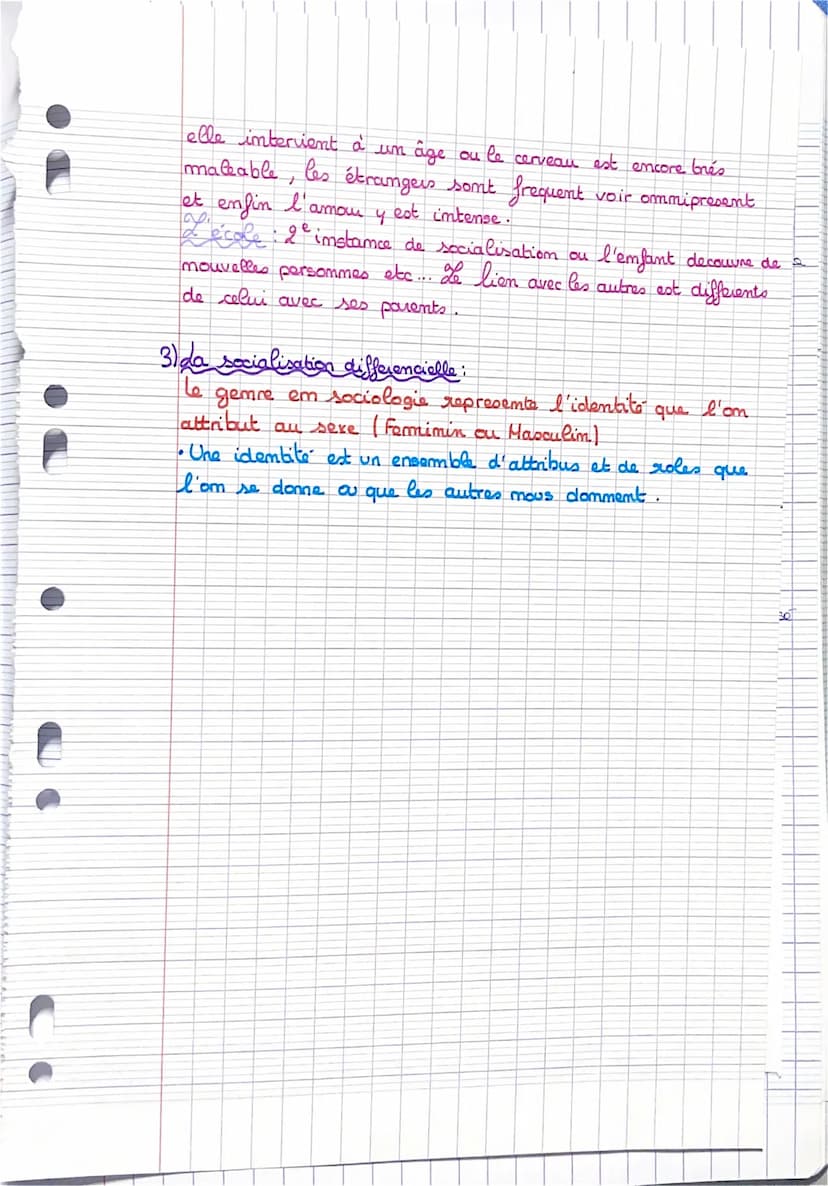 elle intervient à un âge ou le cerveau est encore trés
maleable, les étrangers sont frequent voir omnipresent
et enfin l'amour y est intense.
L'école : 2e instance de socialisation ou l'enfant decouvre de
nouvelles personnes etc... Le lien avec les autres est differents
de celui avec ses parents.
3) La socialisation differencielle :
Le genre en sociologie represente l'identité que l'on
attribut au sexe (Feminin ou Masculin)
• Une identité est un ensemble d'attribus et de roles que
l'on se donne ou que les autres nous donnent.